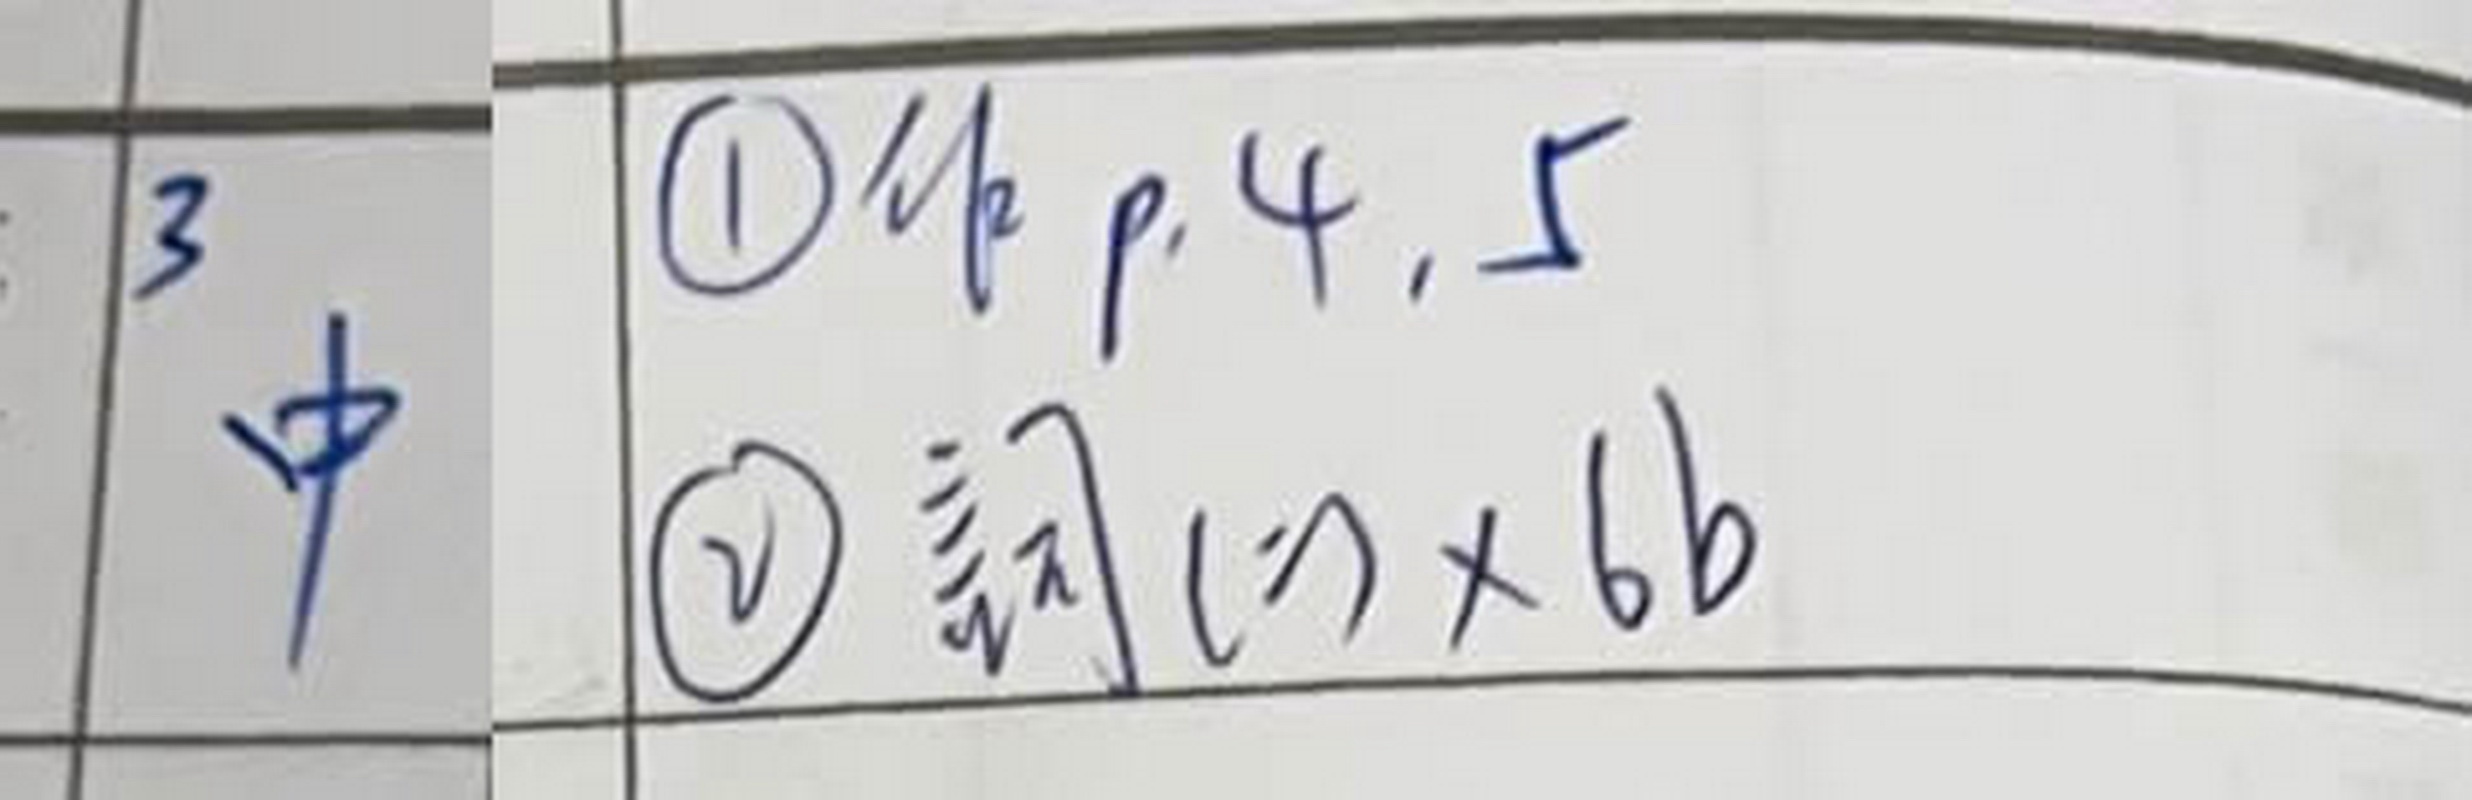 3
中
① 作 p. 4, 5
② 詞 (二) × 6b